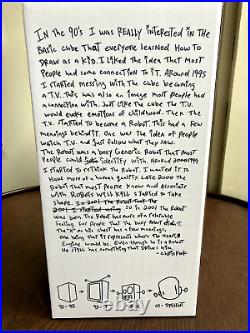 In the 90's I was really interested in the
basic cube that everyone learned how to
draw as a kid. I liked the idea that most
people had some connection to it. Around 1995
I started messing with the cube becoming
a T.V. This was also an image most people had
a connection with. Just like the cube the T.V.
would evoke emotions of childhood. Then the
T.V. started to become a robot. This had a few
meanings behind it. One was the idea of people
watch T.V. and just follow what they saw.
The robot was a very generic robot that most
people could identify with. Around
I started to rethink the robot. I wanted it to
have more of a human quality. Late 2000 the
robot that most people know and associate
with Robots Will Kill started to take
shape.
So in 2001 the robot
was born. The robot has more of a relatable
feeling to people than the boxy robot didn't. The
"K" on his chest has a few meanings,
one being that it represents where the heart/
engine would be. Even though he is a robot
he still has something that drives him.
- Chris RWK
91-95
01 - Present